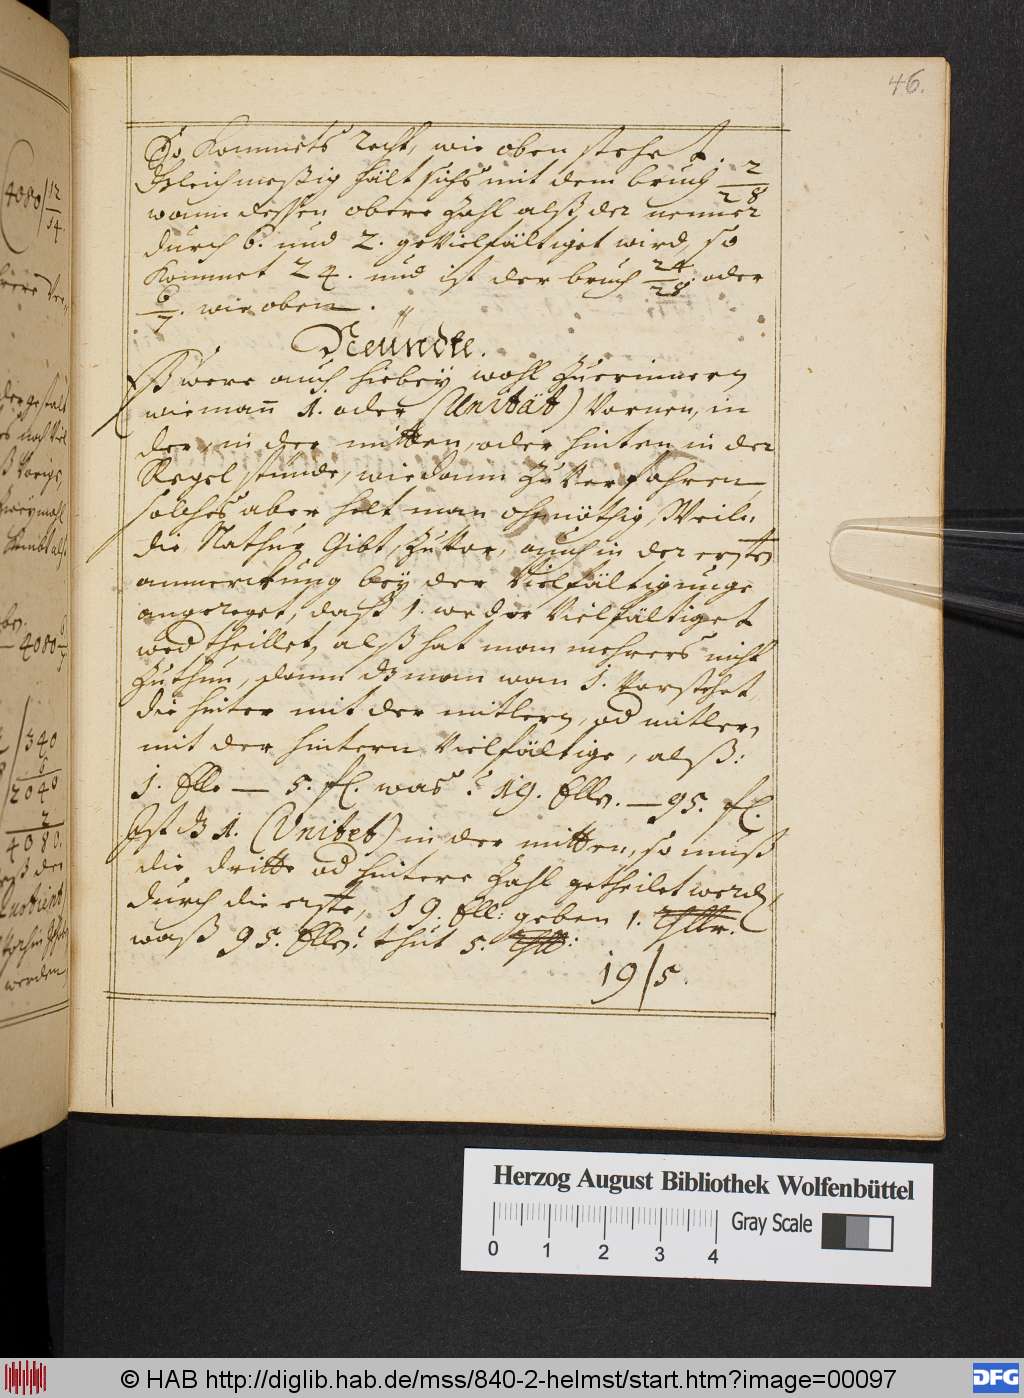 46.
So kommets recht, wie oben stehet.
Gleichmeßig hält sichs mit dem bruch 2/28
wann dessen obere Zahl alß der nenner
durch 6. und 2. gevielfältiget wird, so
kommet 24. und ist der bruch 24/28. oder
6/7. wie oben.
Neündte.
Eß were auch hiebey wohl Zuerinnern
wie mann 1. oder (Unität) Vornen, in
der, in der mitten, oder hinten in der
Regel stünde, wie dann Zu Verfahren,
solches aber helt man ohnnöthig, Weile:
die Nathur Gibt, Zuvor, auch in der ersten
anmerckung bey der Vielfältigunge
angereget, daß 1. weder Vielfältiget
noch theillet, alß hat man mehrers nicht
Zuthun, dann dz man wan 1. Vorstehet
die hinter mit der mitlern, od mitlern
mit der hintern Vielfältige, alß:
1. Elle — 5. fl. was? 19. Ellen. — 95. fl.
Ist dz 1. (Unitet) in der mitten, so muß
die dritte od hintere Zahl getheilet werden,
durch die erste, 19. Ell: geben 1. Thllr.
waß 95. Ellen? thut 5. Thll:
19/5.
(4080/12
14.
4080
/340
6
2040
2
4080.
Quotient
werden
Herzog August Bibliothek Wolfenbüttel
Gray Scale
0 1 2 3 4
© HAB http://diglib.hab.de/mss/840-2-helmst/start.htm?image=00097
DFG